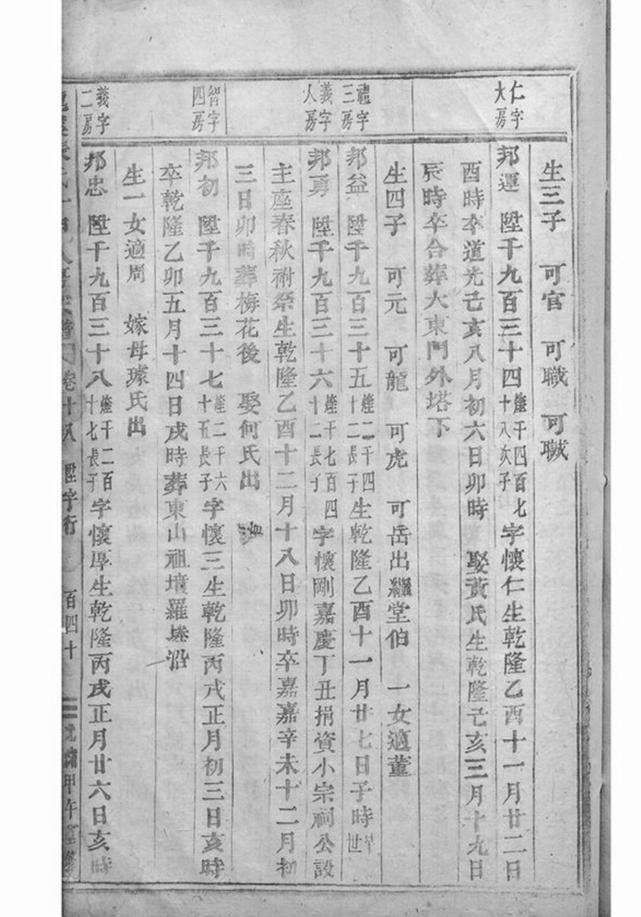 仁字大房
禮字三房
義字人房
智字四房
義字二房
生三子 可官 可職 可職
邦運 陞千九百三十四 燵千四百七十八次子 字懷仁生乾隆乙酉十一月廿二日
酉時卒道光己亥八月初六日卯時 娶黃氏生乾隆己亥三月十九日
辰時卒合葬大東門外塔下
生四子 可元 可龍 可虎 可岳出繼堂伯 一女適董
邦益 陞千九百三十五 燵二千四百二十子 生乾隆乙酉十一月廿七日子時 早世
邦勇 陞千九百三十六 燵千七百四十二長子 字懷剛嘉慶丁丑捐資小宗祠公設
主座春秋祔祭生乾隆乙酉十二月十八日卯時卒嘉嘉辛未十二月初
三日卯時葬梅花後 娶何氏出
邦初 陞千九百三十七 燵二千六十五長子 字懷三生乾隆丙戌正月初三日亥時
卒乾隆乙卯五月十四日戌時葬東山祖墳羅墘沿
生一女適周 嫁母璩氏出
邦忠 陞千九百三十八 燵千二百十七長子 字懷厚生乾隆丙戌正月廿六日亥時
卷十八 陞字行 百四十
甲午